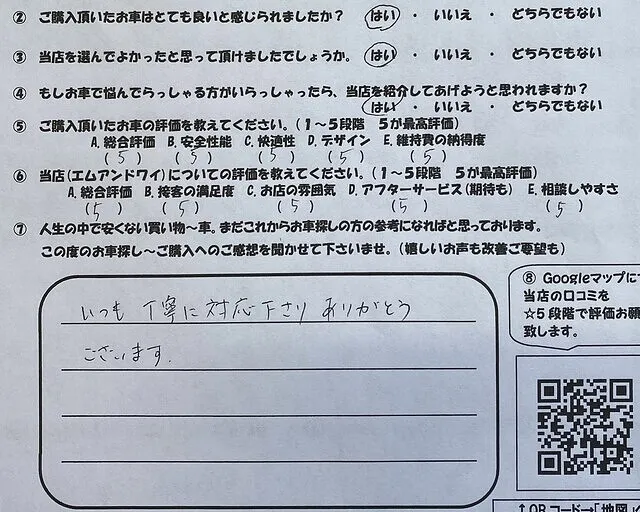 ② ご購入頂いたお車はとても良いと感じられましたか？ はい ・ いいえ ・ どちらでもない
③ 当店を選んでよかったと思って頂けましたでしょうか。 はい ・ いいえ ・ どちらでもない
④ もしお車で悩んでらっしゃる方がいらっしゃったら、当店を紹介してあげようと思われますか？
はい ・ いいえ ・ どちらでもない
⑤ ご購入頂いたお車の評価を教えてください。(１～５段階　５が最高評価)
A. 総合評価 B. 安全性能 C. 快適性 D. デザイン E. 維持費の納得度
(5) (5) (5) (5) (5)
⑥ 当店(エムアンドワイ)についての評価を教えてください。(１～５段階　５が最高評価)
A. 総合評価 B. 接客の満足度 C. お店の雰囲気 D. アフターサービス(期待も) E. 相談しやすさ
(5) (5) (5) (5) (5)
⑦ 人生の中で安くない買い物～車。まだこれからお車探しの方の参考になればと思っております。
この度のお車探し～ご購入へのご感想を聞かせて下さいませ。(嬉しいお声も改善ご要望も)
いつも 丁寧に 対応下さり ありがとう
ございます.
⑧ Googleマップに
当店の口コミを
☆５段階で評価お願
致します。
↑QRコード→「地図」